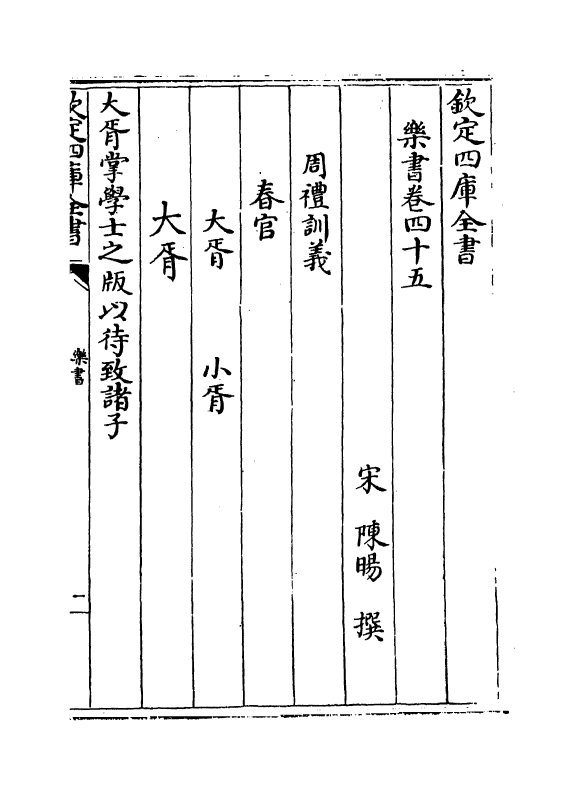 欽定四庫全書
樂書卷四十五
宋 陳暘 撰
周禮訓義
春官
大胥 小胥
大胥
大胥掌學士之版以待致諸子
欽定四庫全書
樂書
二